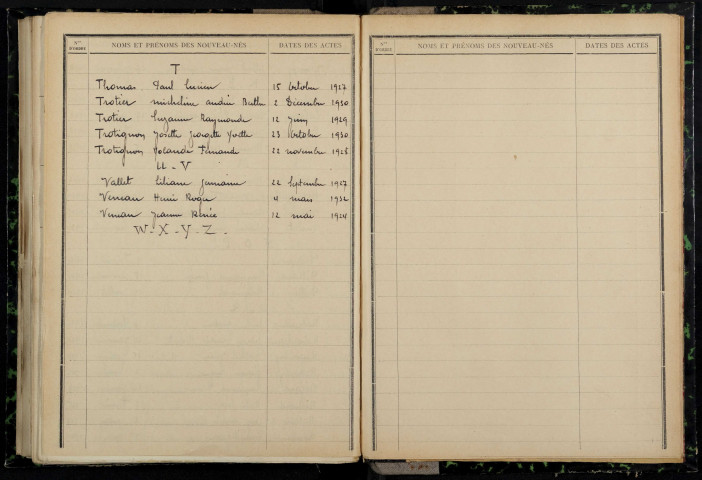 Nos D'ORDRE NOMS ET PRÉNOMS DES NOUVEAU-NÉS DATES DES ACTES
T
Thomas Paul Lucien 15 Octobre 1927
Trotier Micheline Andrée Berthe 2 Décembre 1930
Trotier Suzanne Raymonde 12 Juin 1929
Trotignon Josette Georgette Yvette 23 Octobre 1930
Trotignon Yolande Fernande 22 novembre 1926
U - V
Vallet Liliane Germaine 22 Septembre 1927
Veneau Henri Roger 4 mars 1932
Veneau Jeanne Renée 12 mai 1924
W - X - Y - Z -
Nos D'ORDRE NOMS ET PRÉNOMS DES NOUVEAU-NÉS DATES DES ACTES